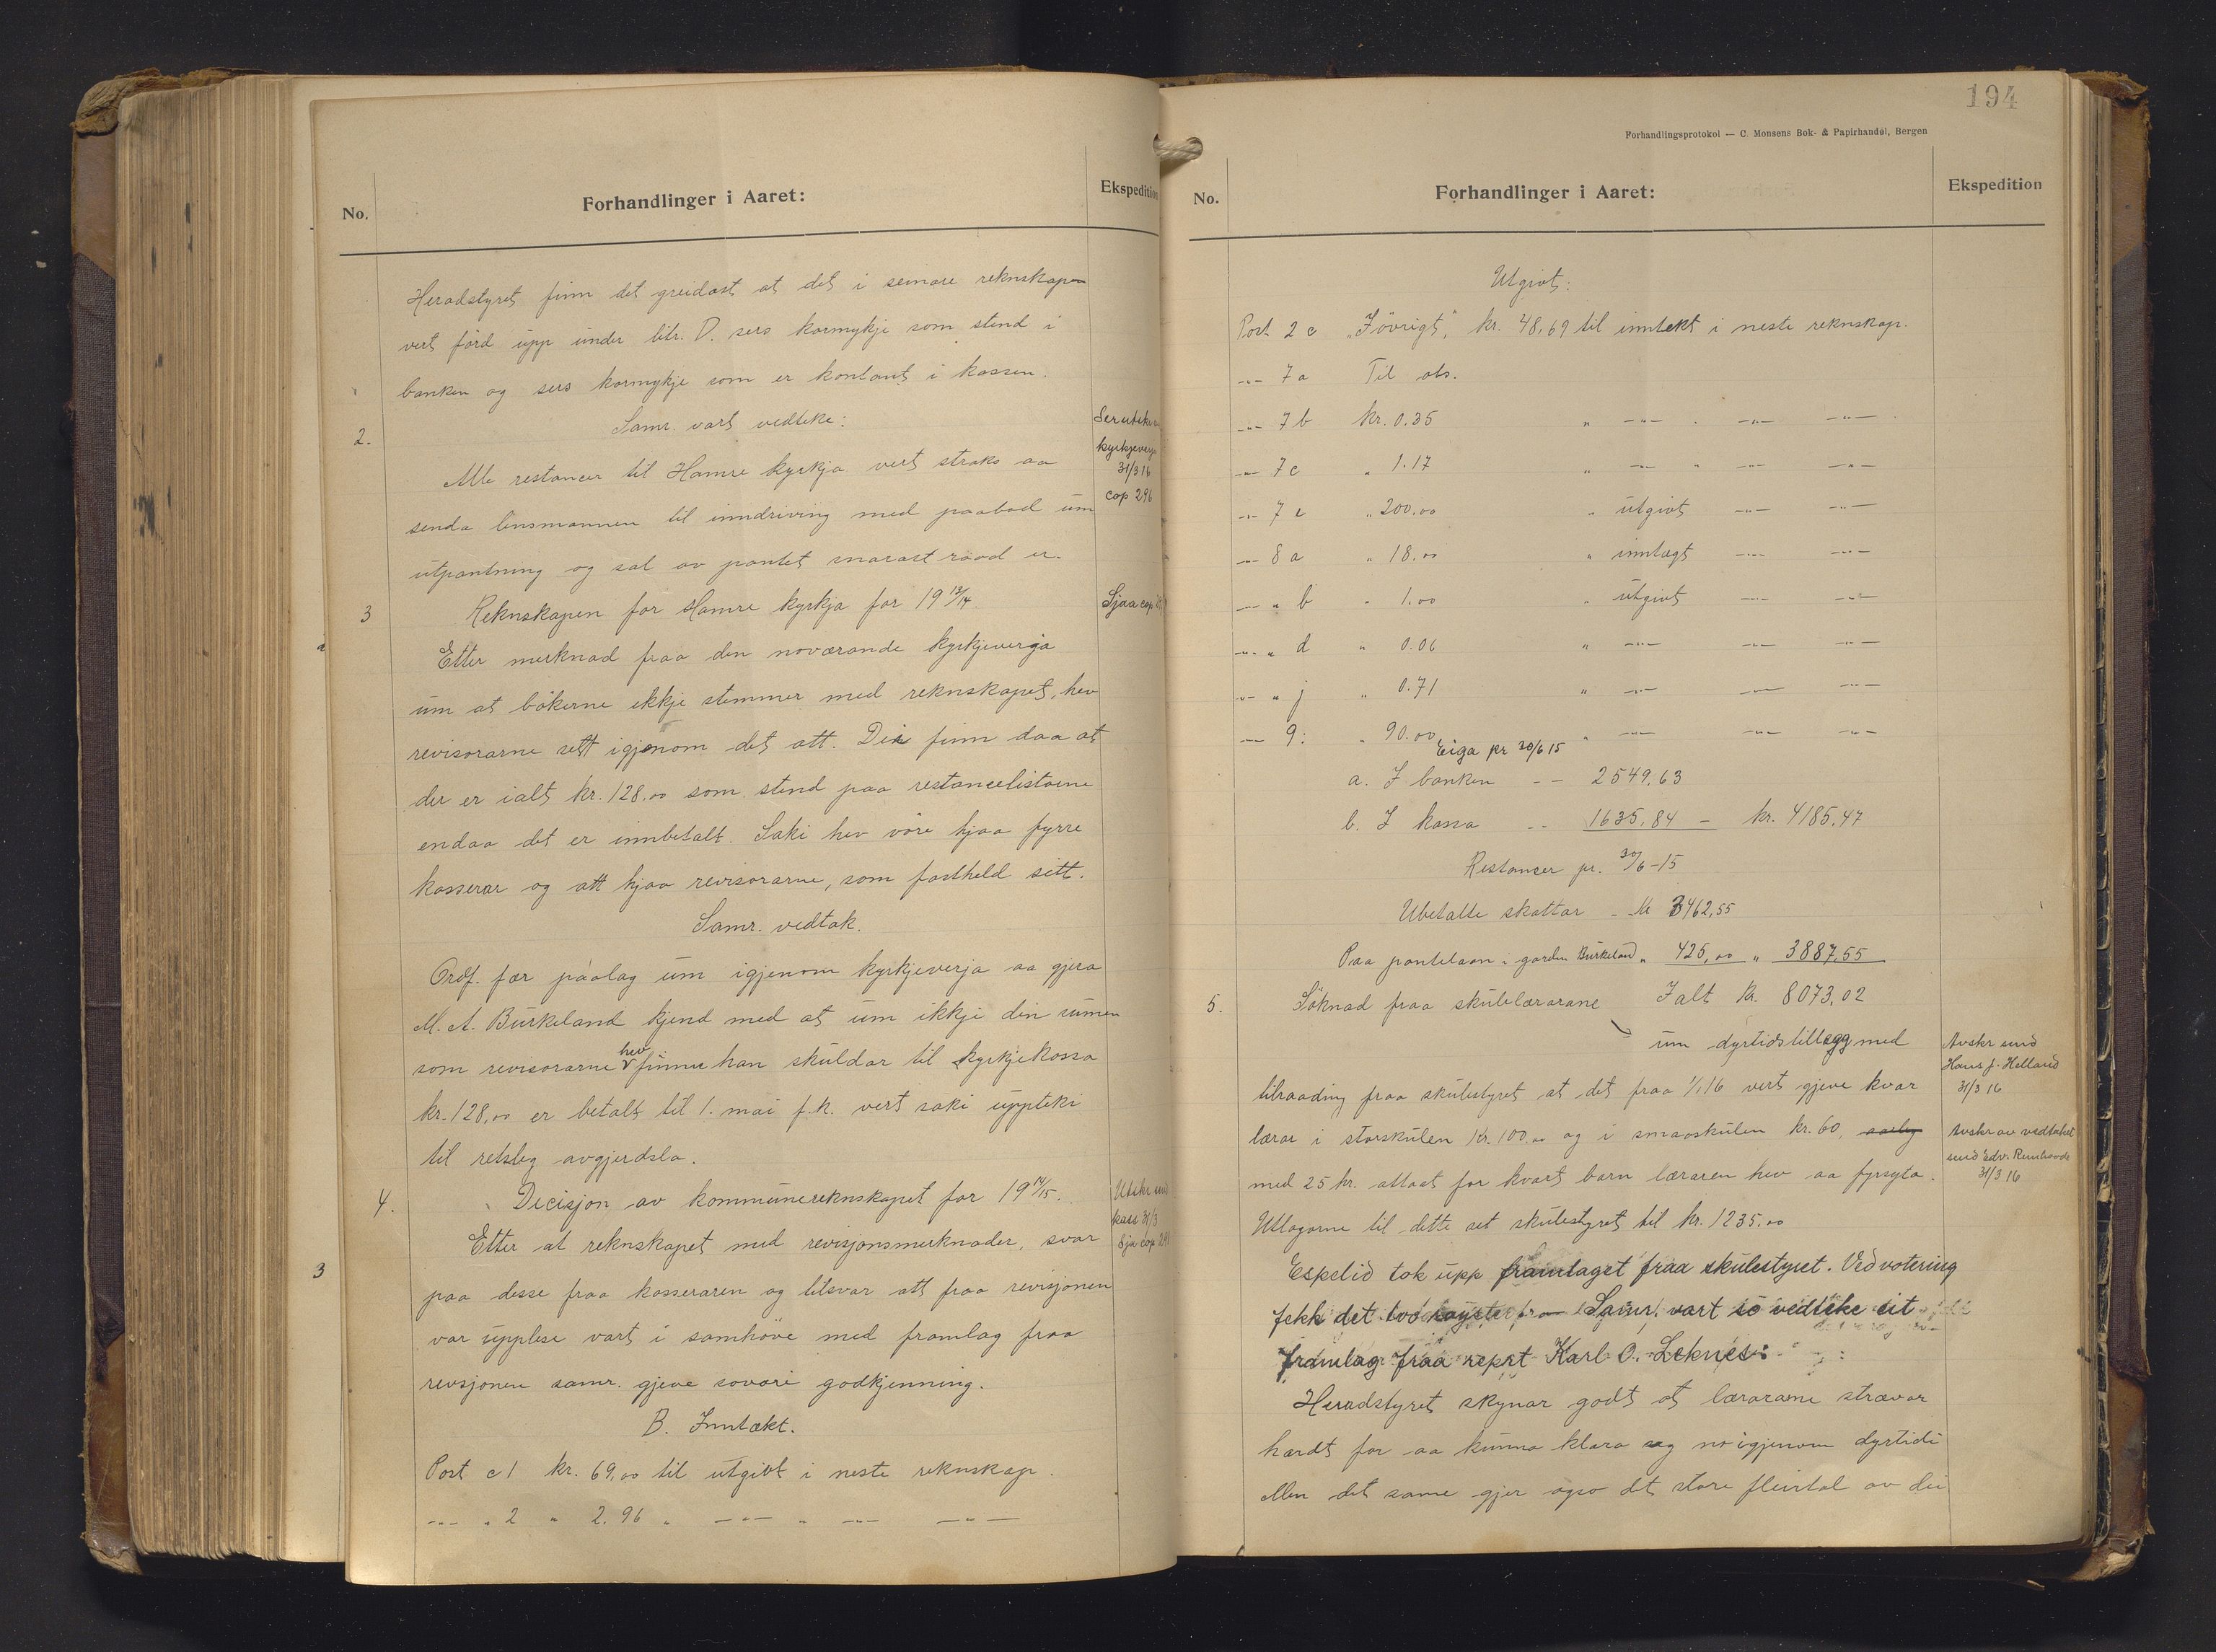 No.
Forhandlinger i Aaret:
Ekspedition
Heradstyret finn det greidast at det i seinare reknskapen
vert förd upp under litr. D. sers kormykje som stend i
banken og sers kormykje som er kontant i kassen.
2.
Samr. vart vedteke:
Alle restancer til Hamre kyrkja vert straks aa
senda lensmannen til inndriving med paabod um
utpantning og sal av pantet snarast raad er.
kyrkjeverja
31/3 16
cop 296
3
Reknskapen for Hamre kyrkja for 19 13/14
Sjaa cop
Etter merknad fraa den noværande kyrkjeverja
um at bökerne ikkje stemmer med reknskapet, hev
revisorarne sett igjenom det att. Dei finn daa at
der er ialt kr. 128,00 som stend paa restancelistorne
endaa det er innbetalt. Saki hev vore hjaa fyrre
kasserar og att hjaa revisorarne, som fastheld sitt.
Samr. vedtak.
Ordf. fær paalag um igjenom kyrkjeverja aa gjera
M. A. Burkeland kjend med at um ikkji din sumen
som revisorarne hev finner han skuldar til kyrkjekassa
kr. 128,00 er betalt til 1. mai f.k. vert saki uppteki
til retsleg avgjerdsla.
4.
Decisjon av kommunereknskapet for 19 14/15.
Utskr send
kass 31/3
Sja cop
Etter at reknskapet med revisjonsmerknader, svar
3
paa desse fraa kasseraren og tilsvar att fraa revisjonen
var upplese vart i samhöve med framlag fraa
revsjonen samr. gjeve sovori godkjenning.
B. Inntækt.
Post c 1 kr. 69,00 til utgivt i neste reknskap.
-"- " 2 " 2.96 " -"- " -"- -"-
194
Forhandlingsprotokol — C. Monsens Bok- & Papirhandel, Bergen
No.
Forhandlinger i Aaret:
Ekspedition
Utgivt:
Post 2 c "Iövrigt", kr. 48,69 til inntekt i neste reknskap.
-"- 7 a Til obs.
-"- 7 b kr. 0.35 " -"- . -"- -"-
-"- 7 c " 1.17 " -"- " -"- -"-
-"- 7 e " 200.00 " utgivt -"- -"-
-"- 8 a " 18.00 " inntægt -"- -"-
-"- " b " 1.00 " utgivt -"- -"-
-"- " d " 0.06 " -"- -"- -"-
-"- " j " 0.71 " -"- -"- -"-
-"- 9: " 90.00 " -"- -"- -"-
Eiga pr 30/6 15
a. I banken -- 2549.63
b. I kassa -- 1635,84 - kr. 4185,47
Restancer pr. 30/6-15
Ubetalte skattar - kr 3462,55
Paa pantelaan i garden Burkeland " 425,00 " 3887,55
Ialt kr. 8073,02
5.
Söknad fraa skulelærarane
um dyrtidstillegg med
Avskr send
Hans J. Helland
31/3 16
tilraading fraa skulestyret at det fraa 1/1 16 vert gjeve kvar
lærar i storskulen Kr. 100.00 og i smaaskulen kr. 60, aarleg
Avskr av vedtaket
send Edv.
31/3 16
med 25 kr. attaat for kvart barn læraren hev aa fyrsyta.
Utlogorne til dette set skulestyret til kr. 1235.00
Espelid tok upp framlaget fraa skulestyret. Ved votering
fekk det tvo röyster. Samr. vart so vedteke eit
framlag fraa reprt Karl O. Leknes:
Heradstyret skynar godt at lærarane strævar
hardt for aa kunna klara seg no igjenom dyrtidi
Men det same gjer ogso det store fleirtal av dei